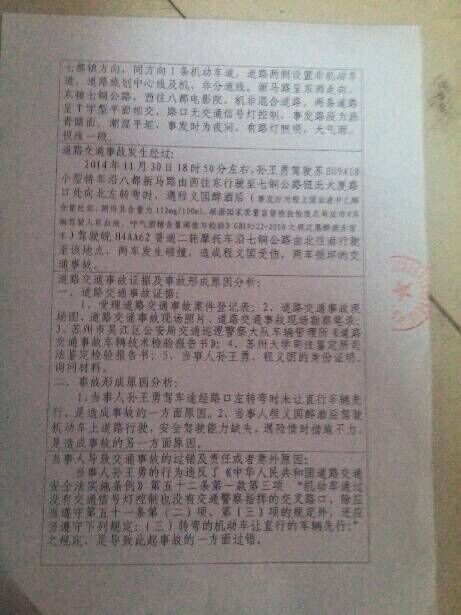 七都镇方向，同方向1条机动车道，道路两侧设置非机动车
道，道路施划中心线及机、非分道线，新马路呈东西走向。
东接七铜公路，西往八都电影院，机非混合道路，两条道路
呈T字型平面相交，路口无交通信号灯控制，事发路段为沥
青路面，潮湿平坦，事发时为夜间，有路灯照明，天气雨。
视线一般。
道路交通事故发生经过：
2014年11月30日18时50分左右，孙王勇驾驶苏
小型轿车沿八都新马路由西往东行驶至七铜公路恒氏大厦路
口处向北左转弯时，遇程义国醉酒后（事发后对程义国血液中乙醇
含量检验，测得其含量为112mg/100ml，根据国家质量监督检验检疫总局发布《车
辆驾驶人员血液、呼气酒精含量阈值与检验》GB19522-2010 之规定属醉酒驾车
）驾驶皖 H4AA62 普通二轮摩托车沿七铜公路由北往南行驶
至该地点，两车发生碰撞，造成程义国受伤，两车损坏的交
通事故。
道路交通事故证据及事故形成原因分析：
一、道路交通事故证据：
1、受理道路交通事故案件登记表；2、道路交通事故现
场图、道路交通事故现场照片、道路交通事故现场勘察笔录；
3、苏州市吴江区公安局交通巡逻警察大队车辆管理所《道路
交通事故车辆技术检验报告书》；4、苏州大学司法鉴定所司
法鉴定检验报告书；5、当事人孙王勇、程义国的身份证明、
询问材料。
二、事故形成原因分析：
1、当事人孙王勇驾车途经路口左转弯时未让直行车辆先
行，是造成事故的一方面原因。2、当事人程义国醉酒后驾驶
机动车上道路行驶，安全驾驶能力缺失，遇险情时措施不力，
是造成事故的另一方面原因。
当事人导致交通事故的过错及责任或者意外原因：
当事人孙王勇的行为违反了《中华人民共和国道路交通
安全法实施条例》第五十二条第一款第三项 "机动车通过
没有交通信号灯控制也没有交通警察指挥的交叉路口，除应
当遵守第五十一条第（二）项、第（三）项的规定外，还应
当遵守下列规定：（三）转弯的机动车让直行的车辆先行；"
之规定，是导致此起事故的一方面过错。